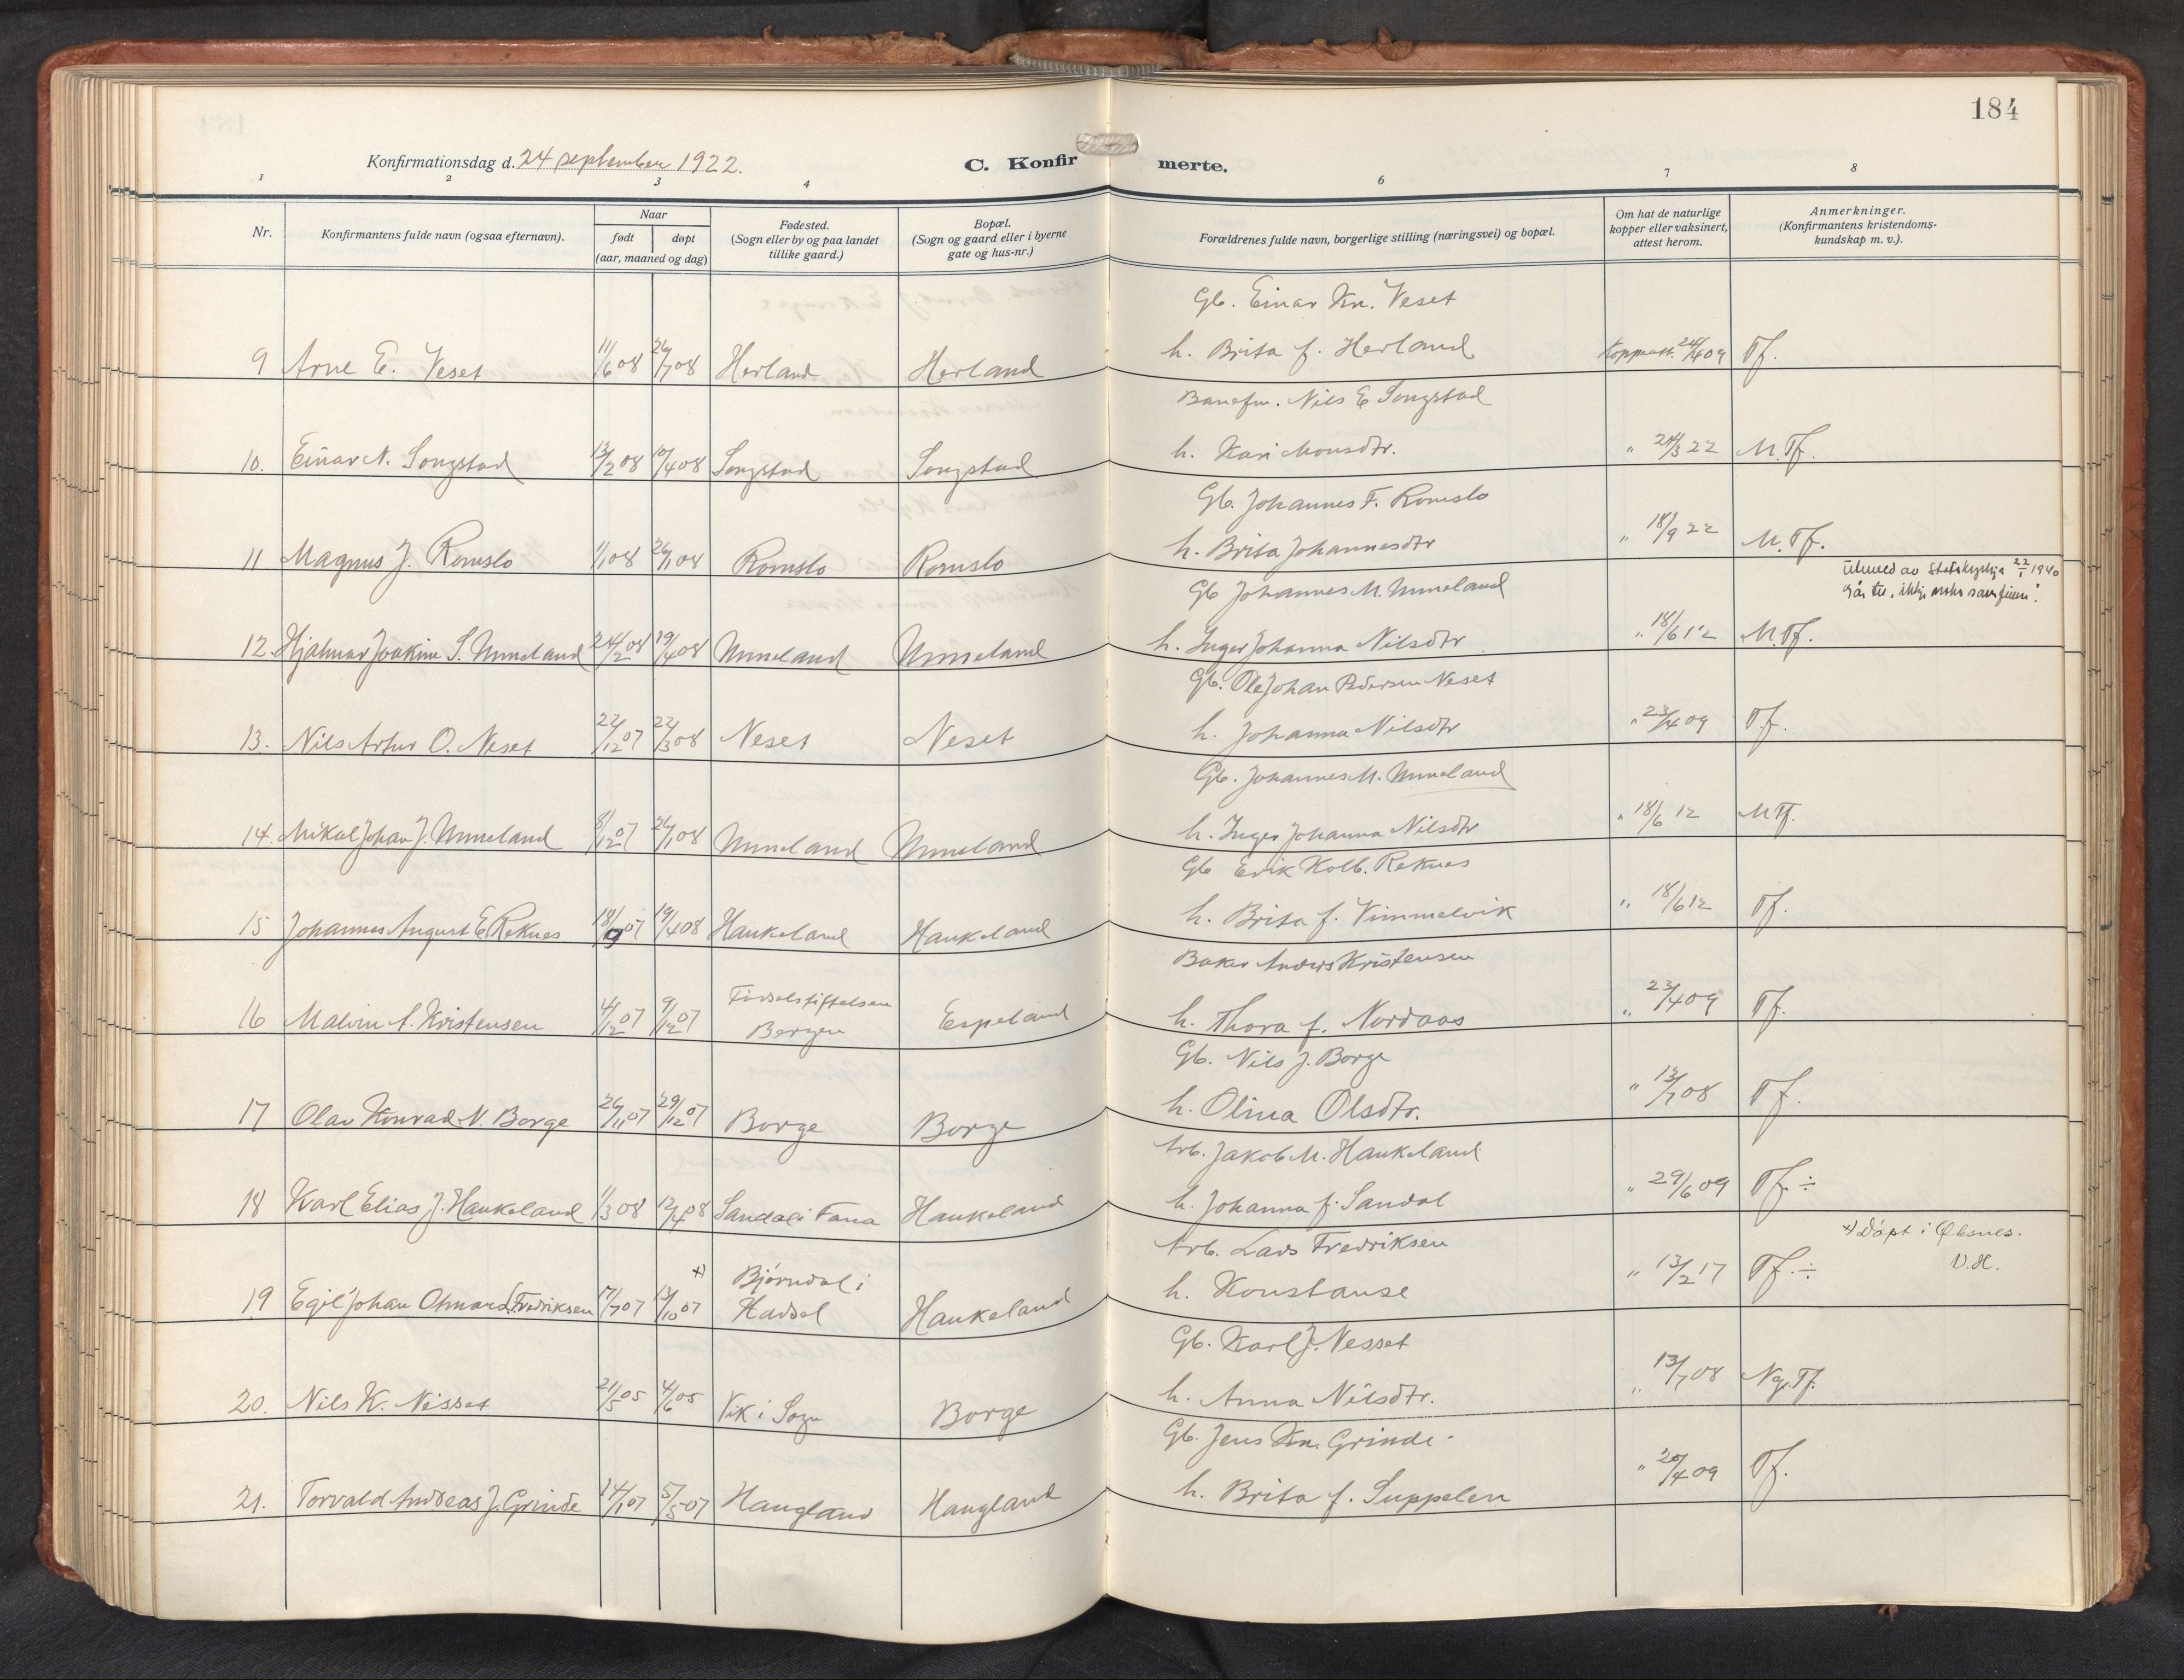 184
Konfirmationsdag d. 24 september 1922.
C. Konfir merte.
1 2 3 4 6 7 8
Nr.
Konfirmantens fulde navn (ogsaa efternavn).
Naar
født døpt
(aar, maaned og dag)
Fødested.
(Sogn eller by og paa landet
tillike gaard.)
Bopæl.
(Sogn og gaard eller i byerne
gate og hus-nr.)
Forældrenes fulde navn, borgerlige stilling (næringsvei) og bopæl.
Om hat de naturlige
kopper eller vaksinert,
attest herom.
Anmerkninger.
(Konfirmantens kristendoms-
kundskap m. v.).
Gb. Einar Kn. Veset
9 Arne E. Veset 11/6 08 26/7 08 Herland Herland h. Brita f. Herland Koppeatt. 24/4 09 Tf.
Banefm. Nils E Songstad
10. Einar N. Songstad 13/2 08 10/4 08 Songstad Songstad h. Kari Monsdtr. " 24/3 22 M.Tf.
Gb. Johannes F. Romslo
11 Magnus J. Romslo 1/1 08 26/1 08 Romslo Romslo h. Brita Johannesdtr " 18/9 22 M.Tf.
Utmeld av Statskyrkja 22/1 1940
Gb Johannes M. Unneland
12. Hjalmar Joakim S. Unneland 24/2 08 19/4 08 Unneland Unneland h. Inger Johanna Nilsdtr " 18/6 12 M.Tf.
Gb. Ole Johan Pedersen Neset
13. Nils Artur O. Neset 22/12 07 22/3 08 Neset Neset h. Johanna Nilsdtr " 23/4 09 Tf.
Gb. Johannes M. Unneland
14. Mikal Johan J. Unneland 8/12 07 26/1 08 Unneland Unneland h. Inger Johanna Nilsdtr " 18/6 12 M Tf.
Gb Erik Kolb. Reknes
15 Johannes August E. Reknes 18/9 07 19/4 08 Haukeland Haukeland h. Brita f. Vimmelvik " 18/6 12 Tf.
Baker Anders Kristensen
Fødselstiftelsen
16 Malvin A. Kristensen 4/12 07 9/12 07 Bergen Espeland h. Thora f. Nordaas " 23/4 09 Tf.
Gb. Nils J. Borge
17 Olav Konrad N. Borge 26/11 07 29/12 07 Borge Borge h. Olina Olsdtr. " 13/7 08 Tf.
Arb. Jakob M. Haukeland
18 Karl Elias J. Haukeland 1/3 08 12/4 08 Sandal i Fana Haukeland h. Johanna f. Sandal " 29/6 09 Tf. ÷
Arb. Lars Fredriksen x) Døpt i Øksnes.
x) Bjørndal i V.H.
19 Egil Johan Otmar L. Fredriksen 17/7 07 13/10 07 Hadsel Haukeland h. Konstanse " 13/2 17 Tf. ÷
Gb. Karl J. Nesset
20. Nils K. Nesset 21/5 05 4/6 05 Vik i Sogn Borge h. Anna Nilsdtr. " 13/7 08 Ng. Tf.
Gb. Jens Kn. Grinde
21. Torvald Andreas J. Grinde 24/1 07 5/5 07 Haugland Haugland h. Brita f. Suppelen " 20/4 09 Tf.